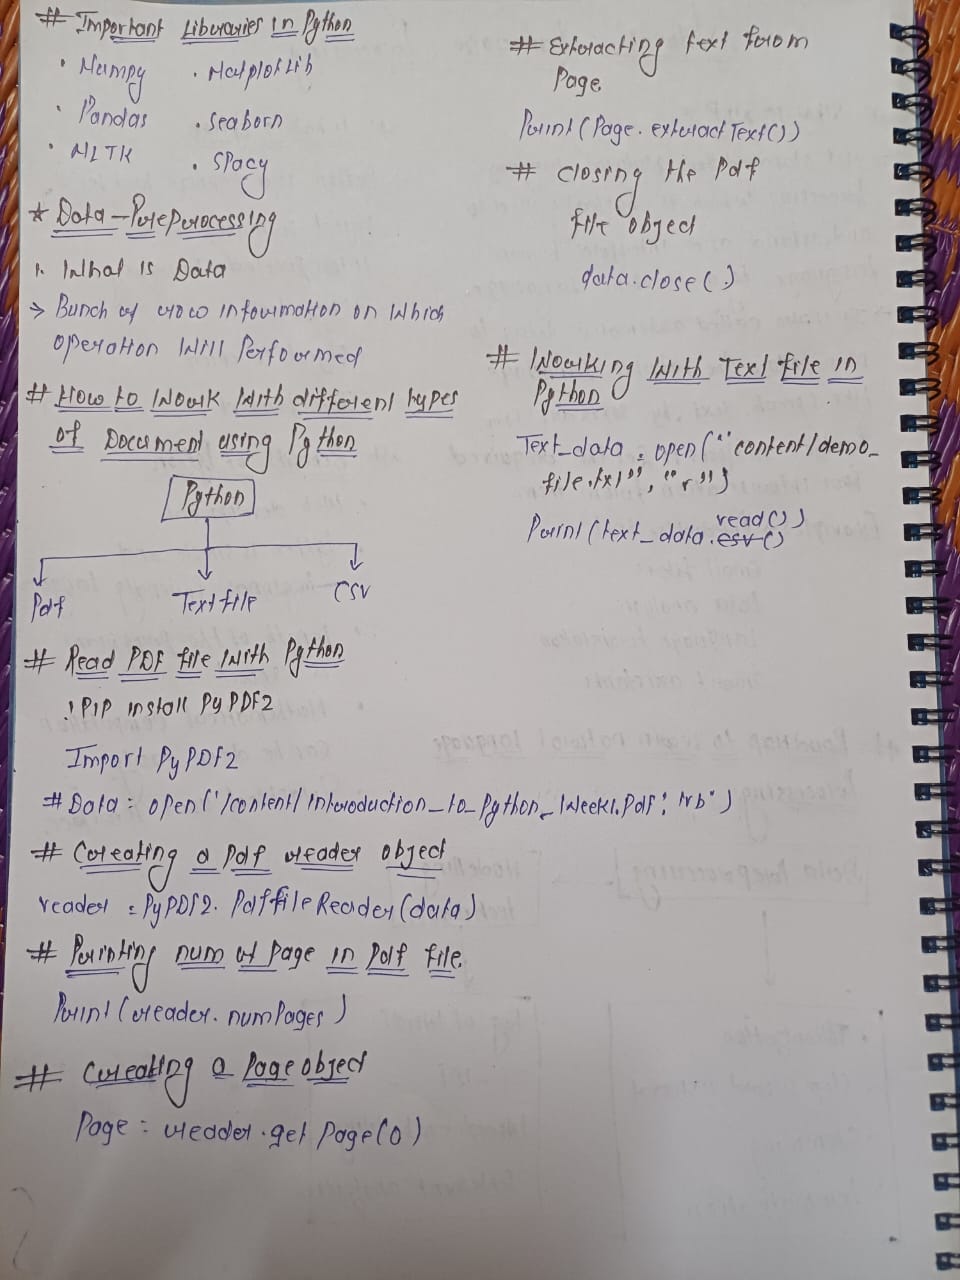 # Important Libraries in Python
• Numpy • Matplotlib
• Pandas • seaborn
• NLTK • SPacy
* Data-Preprocessing
1. What is Data
→ Bunch of raw information on which
operation will Performed
# How to Work With different types
of Document using Python
Python
Pdf Text file CSV
# Read PDF file With Python
! PIP install PyPDF2
Import PyPDF2
# Data = open('/content/Introduction_to_Python_Week1.Pdf', 'rb')
# Creating a Pdf reader object
reader = PyPDF2.PdffileReader(data)
# Printing num of Page in Pdf file.
Print(reader.numPages)
# Creating a Page object
Page = reader.getPage(0)
# Extracting text from
Page
Print(Page.extractText())
# closing the Pdf
file object
data.close()
# Working With Text file in
Python
Text_data = open("content/demo_
file.txt", "r")
read()
Print(text_data.csv()